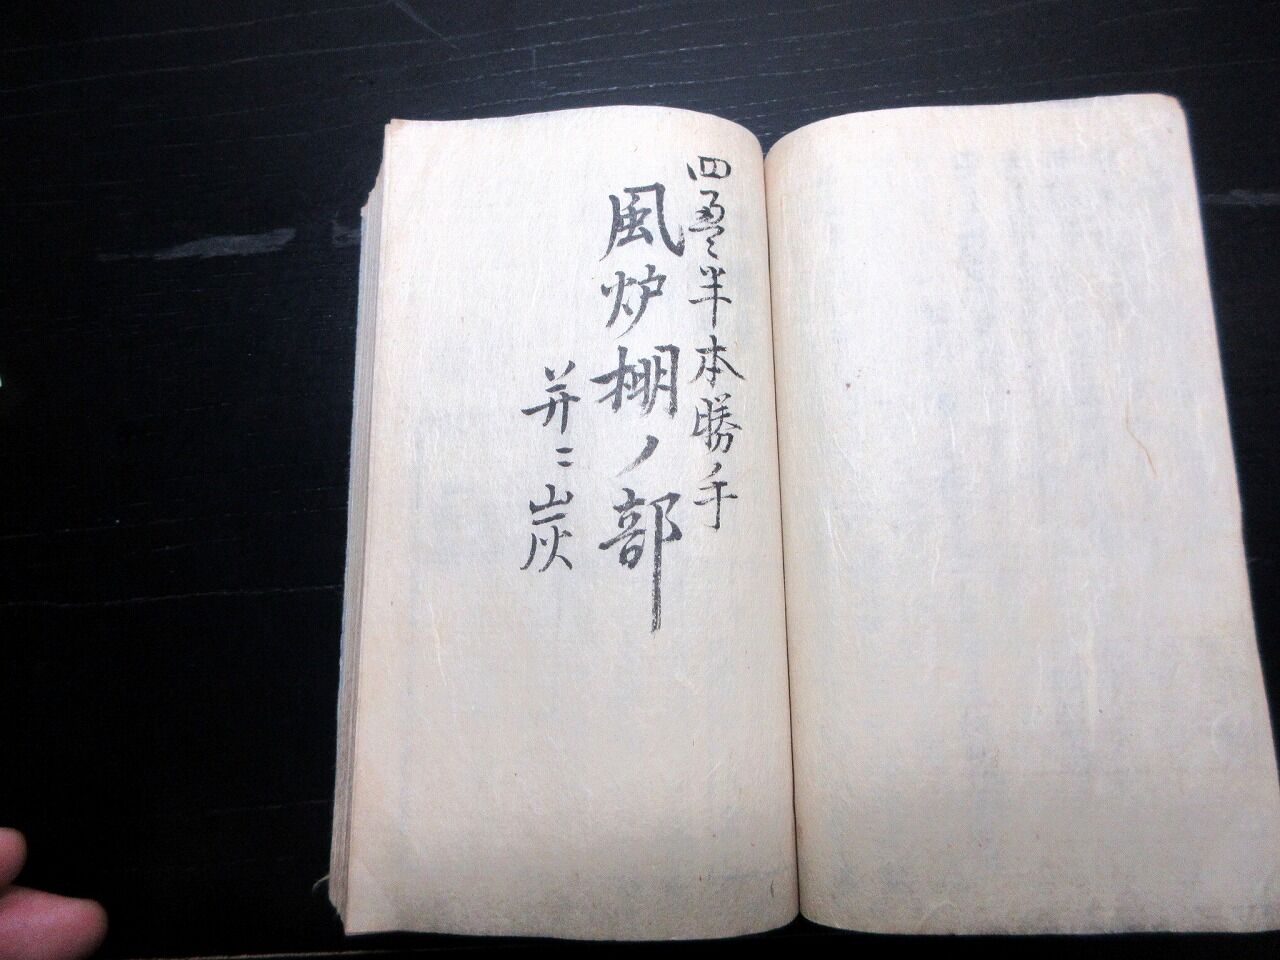 四畳半本勝手
風炉棚ノ部
并ニ炭